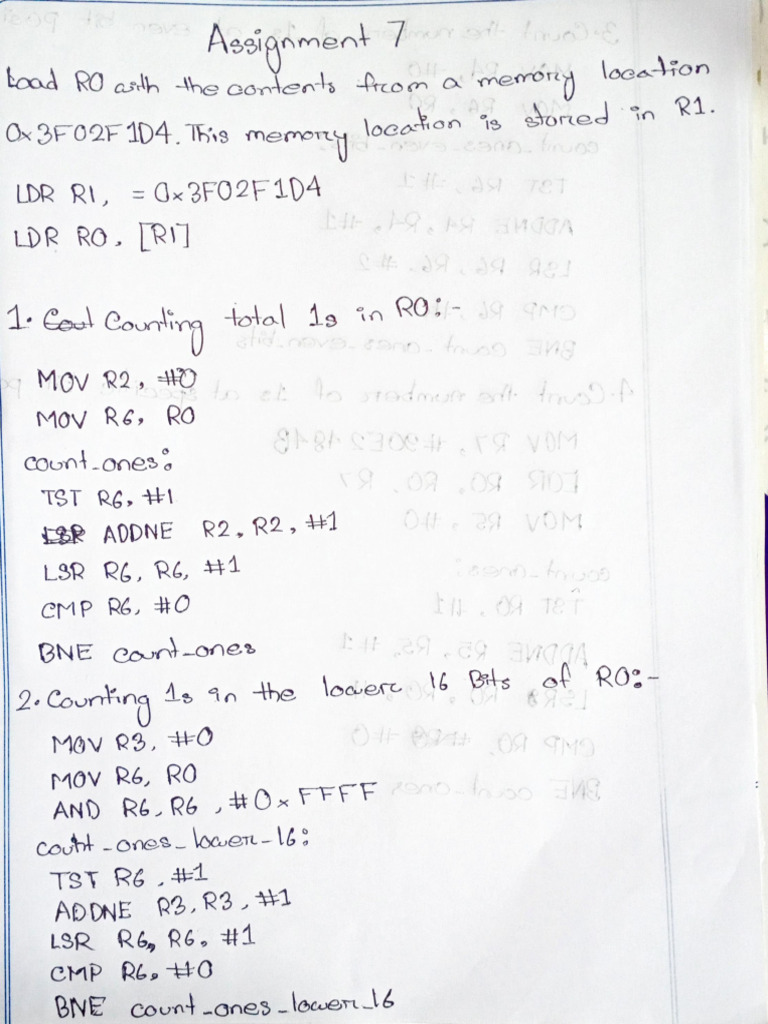 Assignment 7
Load R0 with the contents from a memory location
0x3F02F1D4. This memory location is stored in R1.
LDR R1, = 0x3F02F1D4
LDR R0, [R1]
1. Counting total 1s in R0:-
MOV R2, #0
MOV R6, R0
count_ones:
TST R6, #1
ADDNE R2, R2, #1
LSR R6, R6, #1
CMP R6, #0
BNE count_ones
2. Counting 1s in the lower 16 Bits of R0:-
MOV R3, #0
MOV R6, R0
AND R6, R6, #0xFFFF
count_ones_lower_16:
TST R6, #1
ADDNE R3, R3, #1
LSR R6, R6, #1
CMP R6, #0
BNE count_ones_lower_16